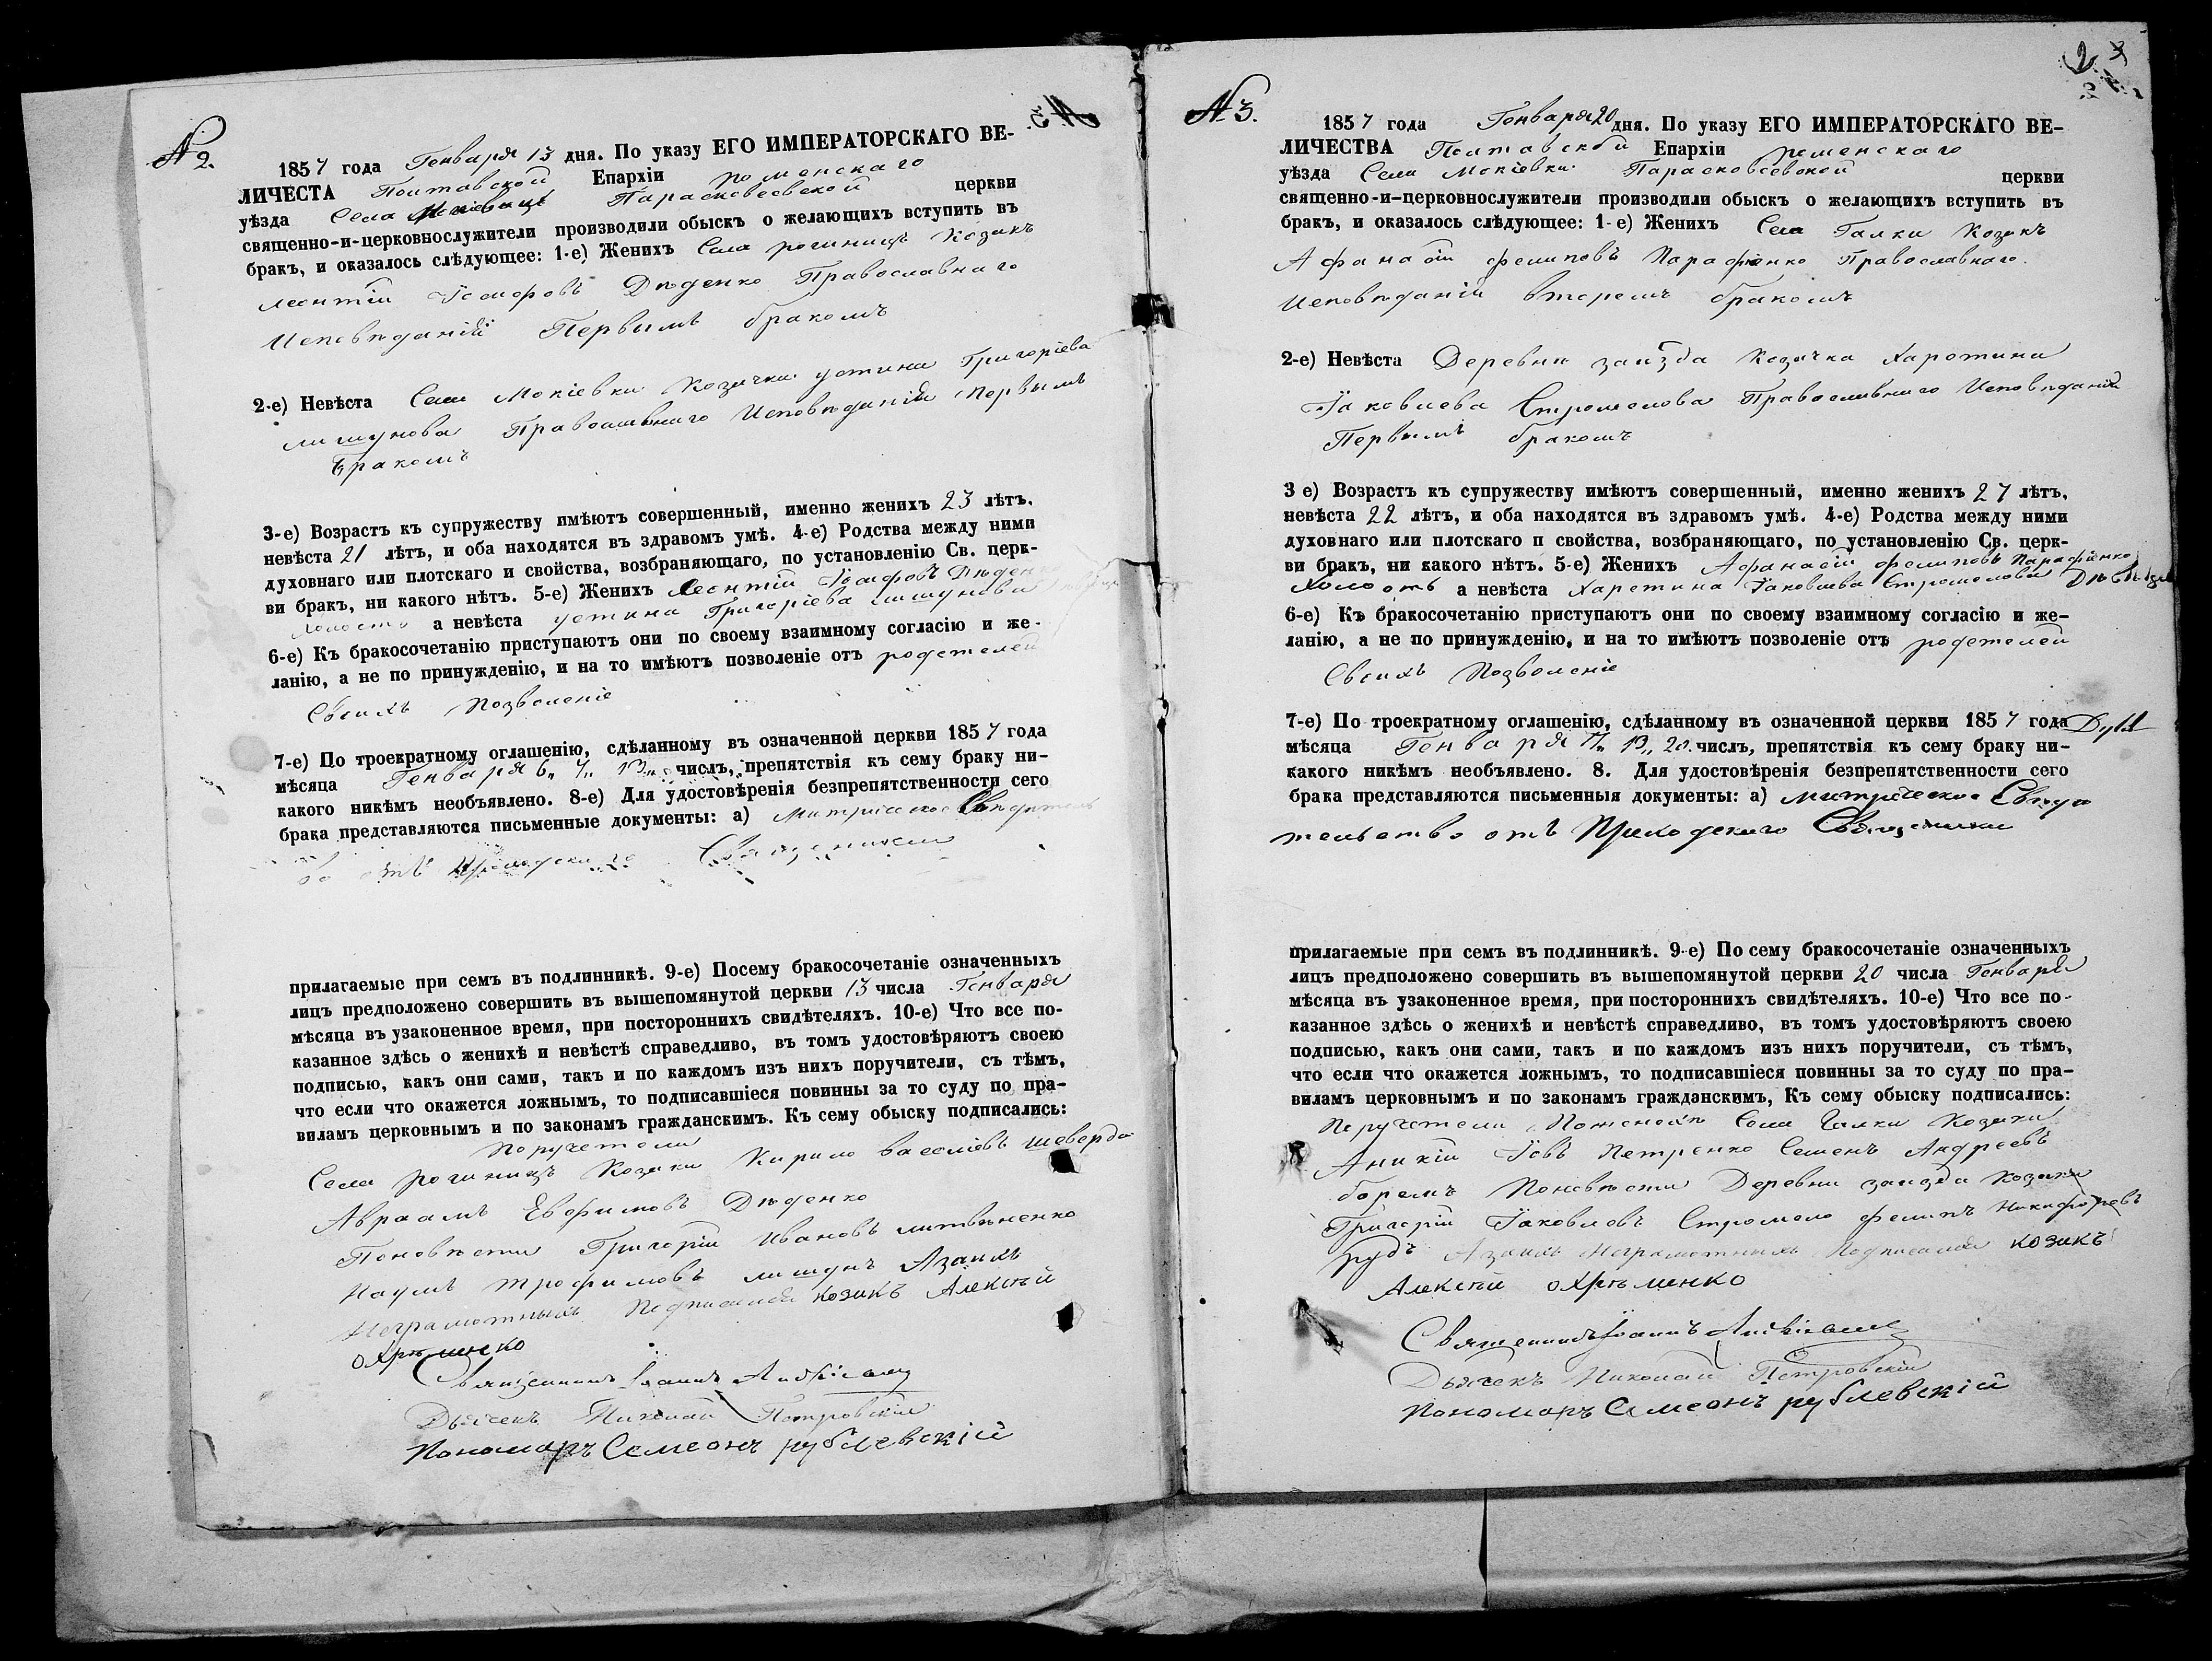 № 2.
1857 года Генваря 13 дня. По указу ЕГО ИМПЕРАТОРСКАГО ВЕ-
ЛИЧЕСТА Полтавской Епархіи роменскаго
уѣзда Села Парасковеевской церкви
священно-и-церковнослужители производили обыскъ о желающихъ вступить въ
бракъ, и оказалось слѣдующее: 1-е) Женихъ Села рогиницъ Козакъ
леонтій Іосифовъ Дѣденко Православнаго
Исповѣданій Первымъ бракомъ
2-е) Невѣста Села Мокіевки Козачка устина Григоріева
лишунова Православнаго Исповѣданій Первымъ
бракомъ
3-е) Возрастъ къ супружеству имѣютъ совершенный, именно женихъ 23 лѣтъ,
невѣста 21 лѣтъ, и оба находятся въ здравомъ умѣ. 4-е) Родства между ними
духовнаго или плотскаго и свойства, возбраняющаго, по установленію Св. церк-
ви бракъ, ни какого нѣтъ. 5-е) Женихъ Леонтій Іосифовъ Дѣден
холостъ а невѣста устина Григоріева лишунова
6-е) Къ бракосочетанію приступаютъ они по своему взаимному согласію и же-
ланію, а не по принужденію, и на то имѣютъ позволеніе отъ родетелей
Своихъ Позволеніе
7-е) По троекратному оглашенію, сдѣланному въ означенной церкви 1857 года
мѣсяца Генваря 6„ 7„ 13„ числъ, препятствія къ сему браку ни-
какого никѣмъ необъявлено. 8-е) Для удостовѣренія безпрепятственности сего
брака представляются письменные документы: а) Митрическое Свѣдѣтель
во отъ Приходскаго Священика
прилагаемые при семъ въ подлинникѣ. 9-е) Посему бракосочетаніе означенныхъ
лицъ предположено совершить въ вышепомянутой церкви 13 числа Генваря
мѣсяца въ узаконенное время, при постороннихъ свидѣтеляхъ. 10-е) Что все по-
казанное здѣсь о женихѣ и невѣстѣ справедливо, въ томъ удостовѣряютъ своею
подписью, какъ они сами, такъ и по каждомъ изъ нихъ поручители, съ тѣмъ,
что если что окажется ложнымъ, то подписавшіеся повинны за то суду по пра-
виламъ церковнымъ и по законамъ гражданскимъ. Къ сему обыску подписались:
Поручетели
Села рогиницъ Козаки Кирило васелiевъ шеверда
Авраамъ Евфимовъ Дѣденко
Поневѣсти Григорій Ивановъ литвѣненко
Наумъ трофимовъ лишунъ Азаихъ
Неграмотныхъ Подписался козакъ Алексѣй
охрѣменко
Священникъ Іоаннъ
Дьячекъ Николай Петровскій
Пономаръ Семеонъ рублевскій
№ 3.
1857 года Генваря 20 дня. По указу ЕГО ИМПЕРАТОРСКАГО ВЕ-
ЛИЧЕСТВА Полтавской Епархіи роменскаго
уѣзда Села Мокіевки Парасковеевской церкви
священно-и-церковнослужители производили обыскъ о желающихъ вступить въ
бракъ, и оказалось слѣдующее: 1-е) Женихъ Села Галки Козакъ
Афанасій фелиповъ Парафіенко Православнаго
Исповѣданій вторымъ бракомъ
2-е) Невѣста Деревни заизда Козачка Харетина
Іаковлева Стромолова Православнаго Исповѣданій
Первымъ бракомъ
3 е) Возрастъ къ супружеству имѣютъ совершенный, именно женихъ 27 лѣтъ,
невѣста 22 лѣтъ, и оба находятся въ здравомъ умѣ. 4-е) Родства между ними
духовнаго или плотскаго п свойства, возбраняющаго, по установленію Св. церк-
ви бракъ, ни какого нѣтъ. 5-е) Женихъ Афанасій фелиповъ Парафіенко
Холостъ а невѣста Харетина Іаковлева Стромолова
6-е) Къ бракосочетанію приступаютъ они по своему взаимному согласію и же-
ланію, а не по принужденію, и на то имѣютъ позволеніе отъ родетелей
Своихъ Позволеніе
7-е) По троекратному оглашенію, сдѣланному въ означенной церкви 1857 года
мѣсяца Генваря 13„ 20. числъ, препятствія къ сему браку ни-
какого никѣмъ необъявлено. 8. Для удостовѣренія безпрепятственности сего
брака представляются письменныя документы: а) митрическое Свѣдѣ
тельство отъ Приходскаго Священика
прилагаемые при семъ въ подлинникѣ. 9-е) По сему бракосочетаніе означенныхъ
лицъ предположено совершить въ вышепомянутой церкви 20 числа Генваря
мѣсяца въ узаконенное время, при постороннихъ свидѣтеляхъ. 10-е) Что все по-
казанное здѣсь о женихѣ и невѣстѣ справедливо, въ томъ удостовѣряютъ своею
подписью, какъ они сами, такъ и по каждомъ изъ нихъ поручители, съ тѣмъ,
что если что окажется ложнымъ, то подписавшіеся повинны за то суду по пра-
виламъ церковнымъ и по законамъ гражданскимъ, Къ сему обыску подписались:
Поручетели Поженихѣ Села Галки Козаки
Аникій Іовъ Петренко Семенъ Андреевъ
Поневѣсти Деревни заизда козаки
Григорій Іаковлевъ Стромоло фелипъ Никифоровъ
рудъ Азаихъ Неграмотныхъ Подписался козакъ
Алексѣй охрѣменко
Священникъ Іоаннъ
Дьячекъ Николай Петровскій
Пономаръ Семеонъ рублевскій